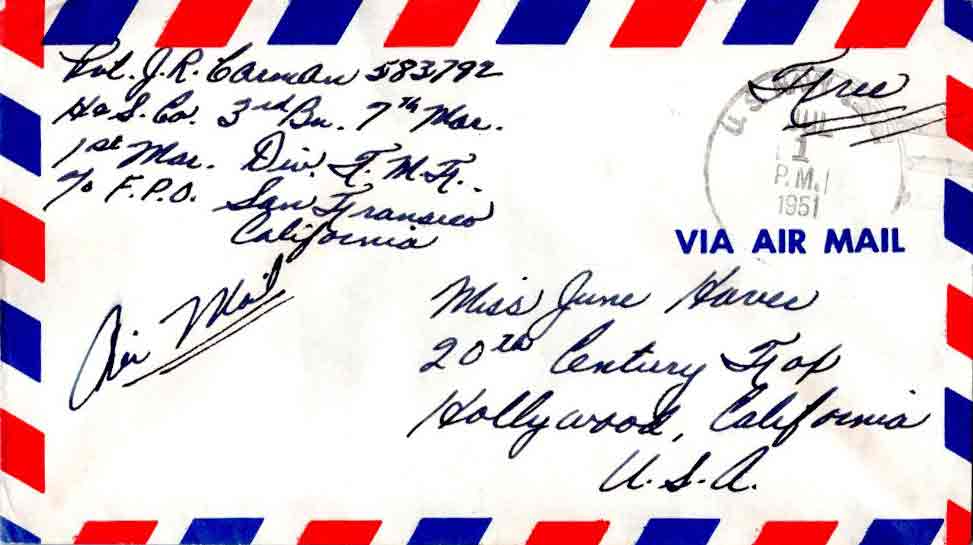 Pvt. J.R. Carman 583792
H&S. Co. 3rd Bn. 7th Mar.
1st Mar. Div. F.M.F.
c/o F.P.O. San Fransico
California
Free
U.S.
JUL
1
P.M.
1951
VIA AIR MAIL
Air Mail
Miss June Haver
20th Century Fox
Hollywood, California
U.S.A.